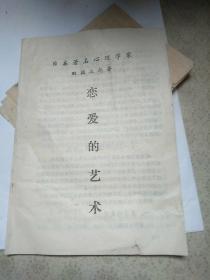 日本著名心理学家
恋爱的艺术